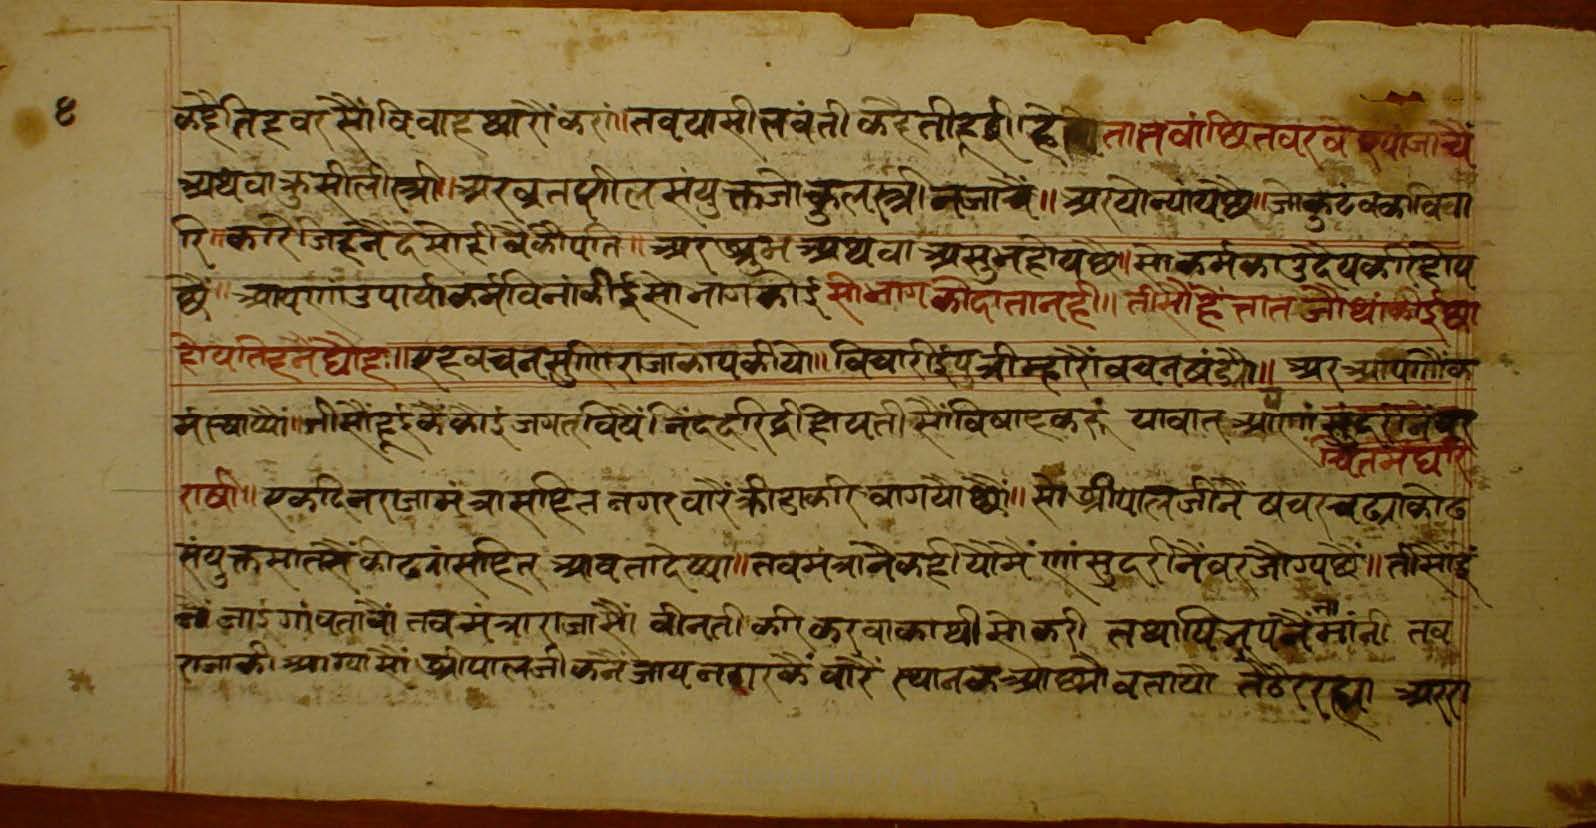 ४
कहै तिह वर सौं विवाह थारौ करां॥ तव या सीलवंती कहती हुई। हे तात वांछित वर वे स्या जाचै
अथवा कुसीली स्त्री॥ अर व्रत शील संयुक्त जो कुल स्त्री न जाचै॥ अर यो न्याय छै॥ जो कुटंव का विवा
रि करि जिहनै दे सो ही वैंकौ पति॥ अर शुभ अथवा असुभ होय छै॥ सो कर्म का उदय करि होय
छै॥ आपणां उपार्या कर्म विनां कोई सोभाग को दाता नही॥ तीसौं हे तात जौ थां की ईछा
होय तिहनै द्यौह॥ एह वचन सुणि राजा काप कीयो॥ विचारी ई पुत्री म्हारौ वचन षंड्यौ॥ अर आपणौं क
र्म स्थाप्यौ॥ तीसौं हूं ईंकै कोई जगत विषैं निंद दरिद्री होय ती सौं विवाह करूं या वात आपणां
चित मैं धारि
राषी॥ एक दिन राजा मंत्री सहित नगर वारै क्रीडा करि वा गयौ छौ॥ सो श्रीपालजी नै षचर चढ्या कोढ
संयुक्त सातसै कोढ्यां सहित आवता देष्या॥ तव मंत्री नै कही यो मैंणां सुंदरी नै वर जोग्य छै॥ तीसौं
तव मंत्री राजा सौं वीनती करि करवा का थी सो करी तथापि नृप नै ना मांनी तव
राजा की आग्या सौं श्रीपालजी कनै जाय नगर कै वारै स्थानक आछ्यौ वतायौ तठै रह्या अर रा